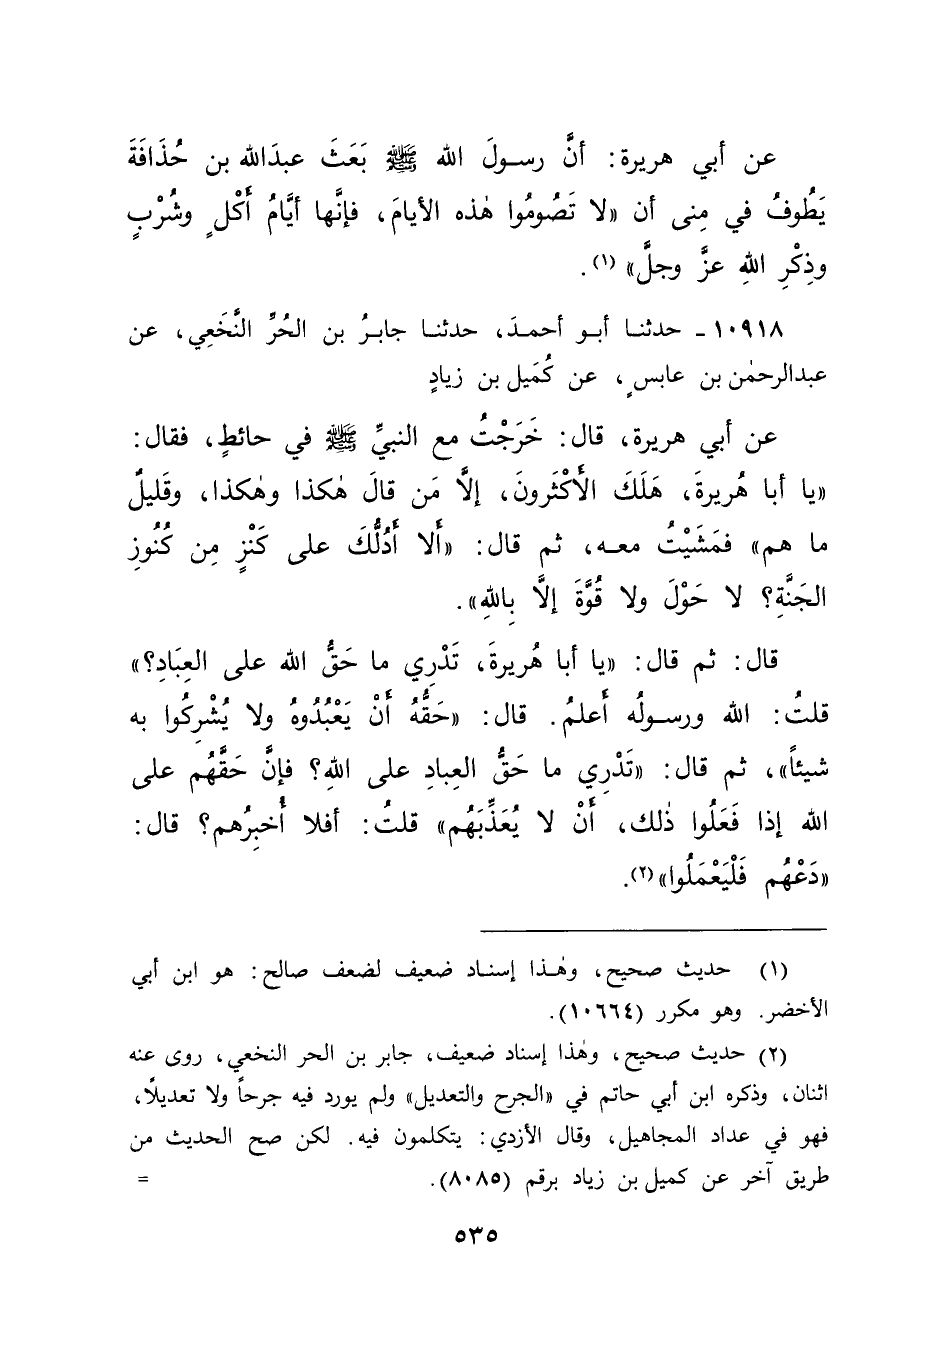 عن أبي هريرة: أنَّ رسولَ الله ﷺ بَعَثَ عبدَالله بن حُذَافَةَ
يَطُوفُ في مِنى أن «لا تَصُومُوا هٰذه الأيامَ، فإنَّها أيَّامُ أَكْلٍ وشُرْبٍ
وذِكْرِ اللهِ عزَّ وجلَّ» (١).
١٠٩١٨ ـ حدثنـا أبـو أحمـدَ، حدثنـا جابـرُ بن الحُرِّ النَّخَعِي، عن
عبدالرحمٰن بن عابسٍ، عن كُمَيل بن زيادٍ
عن أبي هريرة، قال: خَرَجْتُ مع النبيِّ ﷺ في حائطٍ، فقال:
«يا أبا هُريرةَ، هَلَكَ الأَكْثَرونَ، إلَّا مَن قالَ هٰكذا وهٰكذا، وقَليلٌ
ما هم» فمَشَيْتُ معـه، ثم قال: «أَلا أَدُلُّكَ على كَنْزٍ مِن كُنُوزِ
الجَنَّةِ؟ لا حَوْلَ ولا قُوَّةَ إلَّا بِاللهِ».
قال: ثم قال: «يا أبا هُريرةَ، تَدْرِي ما حَقُّ الله على العِبَادِ؟»
قلتُ: الله ورسـولُه أَعلمُ. قال: «حَقُّهُ أَنْ يَعْبُدُوهُ ولا يُشْرِكُوا به
شيئاً»، ثم قال: «تَدْرِي ما حَقُّ العِبادِ على اللهِ؟ فإنَّ حَقَّهُم على
الله إذا فَعَلُوا ذٰلك، أَنْ لا يُعَذِّبَهُم» قلتُ: أفلا أُخبِرُهم؟ قال:
«دَعْهُم فَلْيَعْمَلُوا»(٢).
(١) حديث صحيح، وهٰـذا إسنـاد ضعيف لضعف صالح: هو ابن أبي
الأخضر. وهو مكرر (١٠٦٦٤).
(٢) حديث صحيح، وهٰذا إسناد ضعيف، جابر بن الحر النخعي، روى عنه
اثنان، وذكره ابن أبي حاتم في «الجرح والتعديل» ولم يورد فيه جرحاً ولا تعديلًا،
فهو في عداد المجاهيل، وقال الأزدي: يتكلمون فيه. لكن صح الحديث من
طريق آخر عن كميل بن زياد برقم (٨٠٨٥). =
٥٣٥